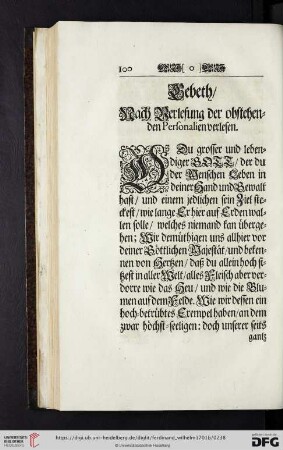 100
Gebeth/
Nach Verlesung der obstehen-
den Personalien verlesen.
O Du grosser und leben-
diger GOTT/ der du
der Menschen Leben in
deiner Hand und Gewalt
hast/ und einem jedlichen sein Ziel ste-
ckest/ wie lange Er hier auf Erden wal-
len solle/ welches niemand kan überge-
hen; Wir demüthigen uns allhier vor
deiner Göttlichen Majestät/ und beken-
nen von Hertzen/ daß du allein hoch si-
tzest in aller Welt/ alles Fleisch aber ver-
dorre wie das Heu/ und wie die Blu-
men auf dem Felde. Wie wir dessen ein
hoch-betrübtes Exempel haben/ an dem
zwar höchst-seeligen: doch unserer seits
gantz
https://digi.ub.uni-heidelberg.de/diglit/ferdinand_wilhelm1701b/0238
© Universitätsbibliothek Heidelberg